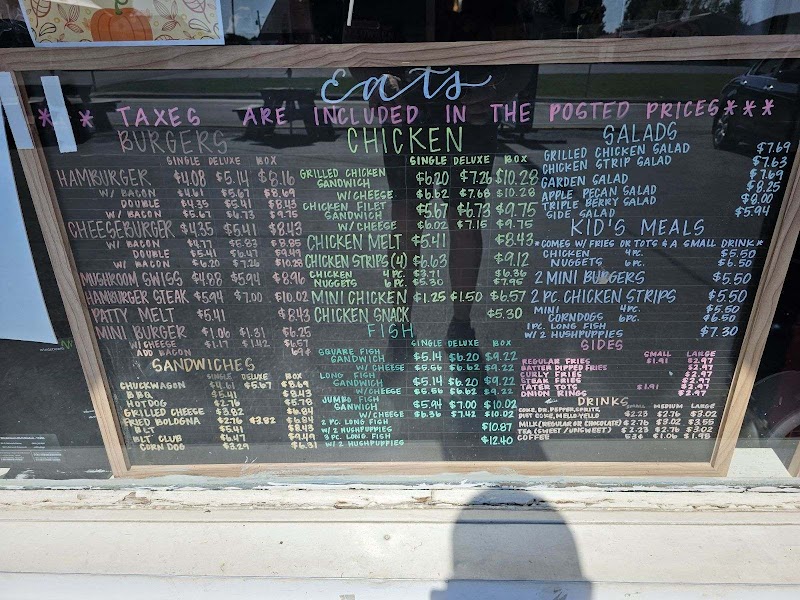 Eats
*** TAXES ARE INCLUDED IN THE POSTED PRICES***
BURGERS
SINGLE DELUXE BOX
HAMBURGER $4.08 $5.14 $8.16
W/ BACON $4.61 $5.67 $8.69
DOUBLE $4.35 $5.41 $8.43
W/ BACON $5.67 $6.73 $9.75
CHEESEBURGER $4.35 $5.41 $8.43
W/ BACON $4.77 $5.83 $8.85
DOUBLE $5.41 $6.47 $9.49
W/ BACON $6.20 $7.26 $10.28
MUSHROOM SWISS $4.88 $5.94 $8.96
HAMBURGER STEAK $5.94 $7.00 $10.02
PATTY MELT $5.41 $8.43
MINI BURGER $1.06 $1.31 $6.25
W/ CHEESE $1.17 $1.42 $6.57
ADD BACON 69¢
SANDWICHES
SINGLE DELUXE BOX
CHUCKWAGON $4.61 $5.67 $8.69
BBQ $5.41 $8.43
HOTDOG $2.76 $5.78
GRILLED CHEESE $3.82 $6.84
FRIED BOLOGNA $2.76 $3.82 $6.84
BLT $5.41 $8.43
BLT CLUB $6.47 $9.49
CORN DOG $3.29 $6.31
CHICKEN
SINGLE DELUXE BOX
GRILLED CHICKEN SANDWICH $6.20 $7.26 $10.28
W/CHEESE $6.62 $7.68 $10.28
CHICKEN FILET SANDWICH $5.67 $6.73 $9.75
W/ CHEESE $6.02 $7.15 $9.75
CHICKEN MELT $5.41 $8.43
CHICKEN STRIPS (4) $6.63 $9.12
CHICKEN 4 PC. $3.71 $6.36
NUGGETS 6 PC. $5.30 $7.95
MINI CHICKEN $1.25 $1.50 $6.57
CHICKEN SNACK $5.30
FISH
SINGLE DELUXE BOX
SQUARE FISH SANDWICH $5.14 $6.20 $9.22
W/ CHEESE $5.56 $6.62 $9.22
LONG FISH SANDWICH $5.14 $6.20 $9.22
W/ CHEESE $5.56 $6.62 $9.22
JUMBO FISH SANWICH $5.94 $7.00 $10.02
W/CHEESE $6.36 $7.42 $10.02
2 PC. LONG FISH W/ 2 HUSHPUPPIES $10.87
3 PC. LONG FISH W/ 2 HUSHPUPPIES $12.40
SALADS
GRILLED CHICKEN SALAD $7.69
CHICKEN STRIP SALAD $7.63
GARDEN SALAD $7.69
APPLE PECAN SALAD $8.25
TRIPLE BERRY SALAD $8.00
SIDE SALAD $5.94
KID'S MEALS
*COMES W/ FRIES OR TOTS & A SMALL DRINK*
CHICKEN 4PC. $5.50
NUGGETS 6PC. $6.50
2 MINI BURGERS $5.50
2 PC. CHICKEN STRIPS $5.50
MINI 4PC. $5.50
CORNDOGS 6PC. $6.50
1PC. LONG FISH
W/ 2 HUSHPUPPIES $7.30
SIDES
SMALL LARGE
REGULAR FRIES $1.91 $2.97
BATTER DIPPED FRIES $2.97
CURLY FRIES $2.97
STEAK FRIES $2.97
TATER TOTS $1.91 $2.97
ONION RINGS $2.97
DRINKS
SMALL MEDIUM LARGE
COKE, DR.PEPPER, SPRITE,
DIET COKE, MELLO YELLO $2.23 $2.76 $3.02
MILK (REGULAR OR CHOCOLATE) $2.76 $3.02 $3.55
TEA (SWEET / UNSWEET) $2.23 $2.76 $3.02
COFFEE 53¢ $1.06 $1.98